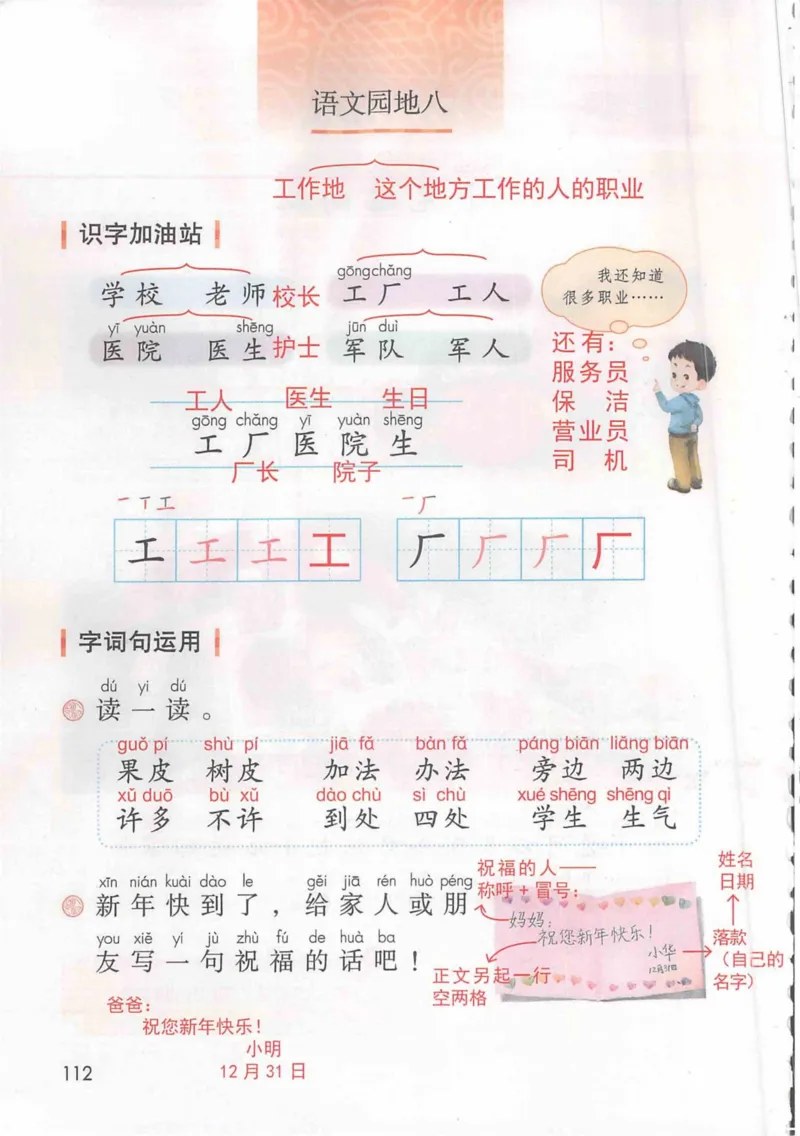 语文园地八
工作地 这个地方工作的人的职业
识字加油站
gōng chǎng
学校 老师 校长 工厂 工人
我还知道
很多职业……
yī yuàn shēng jūn duì
医院 医生 护士 军队 军人
还有：
服务员
保洁
营业员
司机
工人 医生 生日
gōng chǎng yī yuàn shēng
工厂医院生
厂长 院子
一丅工 一厂
工工工工 厂厂厂厂
字词句运用
dú yi dú
读一读。
guǒ pí shù pí jiā fǎ bàn fǎ páng biān liǎng biān
果皮 树皮 加法 办法 旁边 两边
xǔ duō bù xǔ dào chù sì chù xué shēng shēng qì
许多 不许 到处 四处 学生 生气
xīn nián kuài dào le gěi jiā rén huò péng
新年快到了，给家人或朋
you xiě yí jù zhù fú de huà ba
友写一句祝福的话吧！
祝福的人——
称呼+冒号：
妈妈：
祝您新年快乐！
小华
12月31日
姓名
日期
落款
（自己的
名字）
正文另起一行
空两格
爸爸：
祝您新年快乐！
小明
12月31日
112